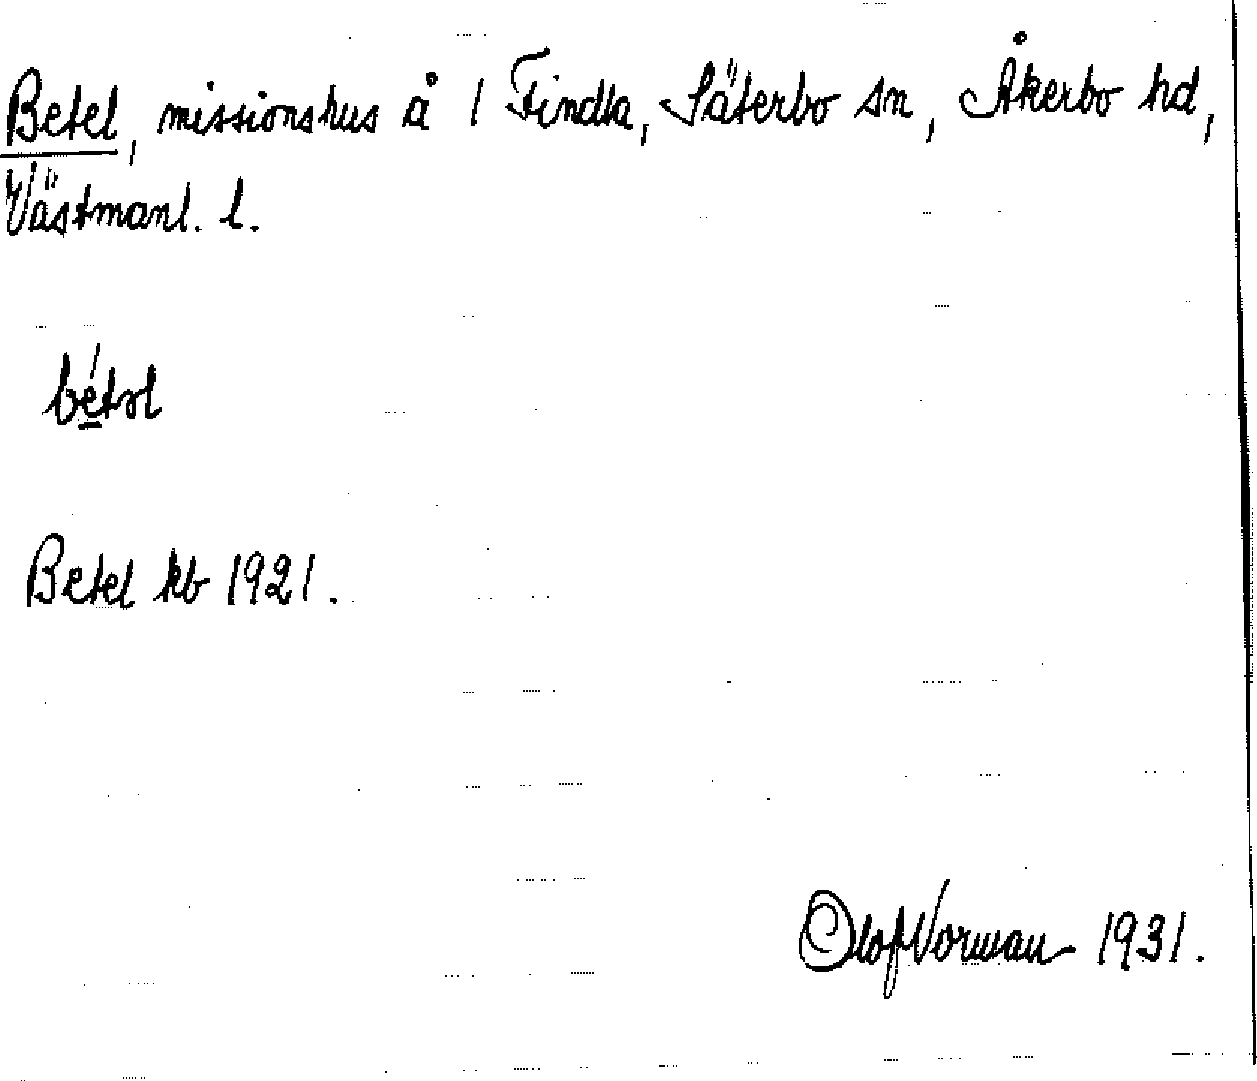 Betel, missionshus å 1 Findla, Säterbo sn, Åkerbo hd,
Västmanl. l.
Betel kb 1921.
Olof Norman 1931.